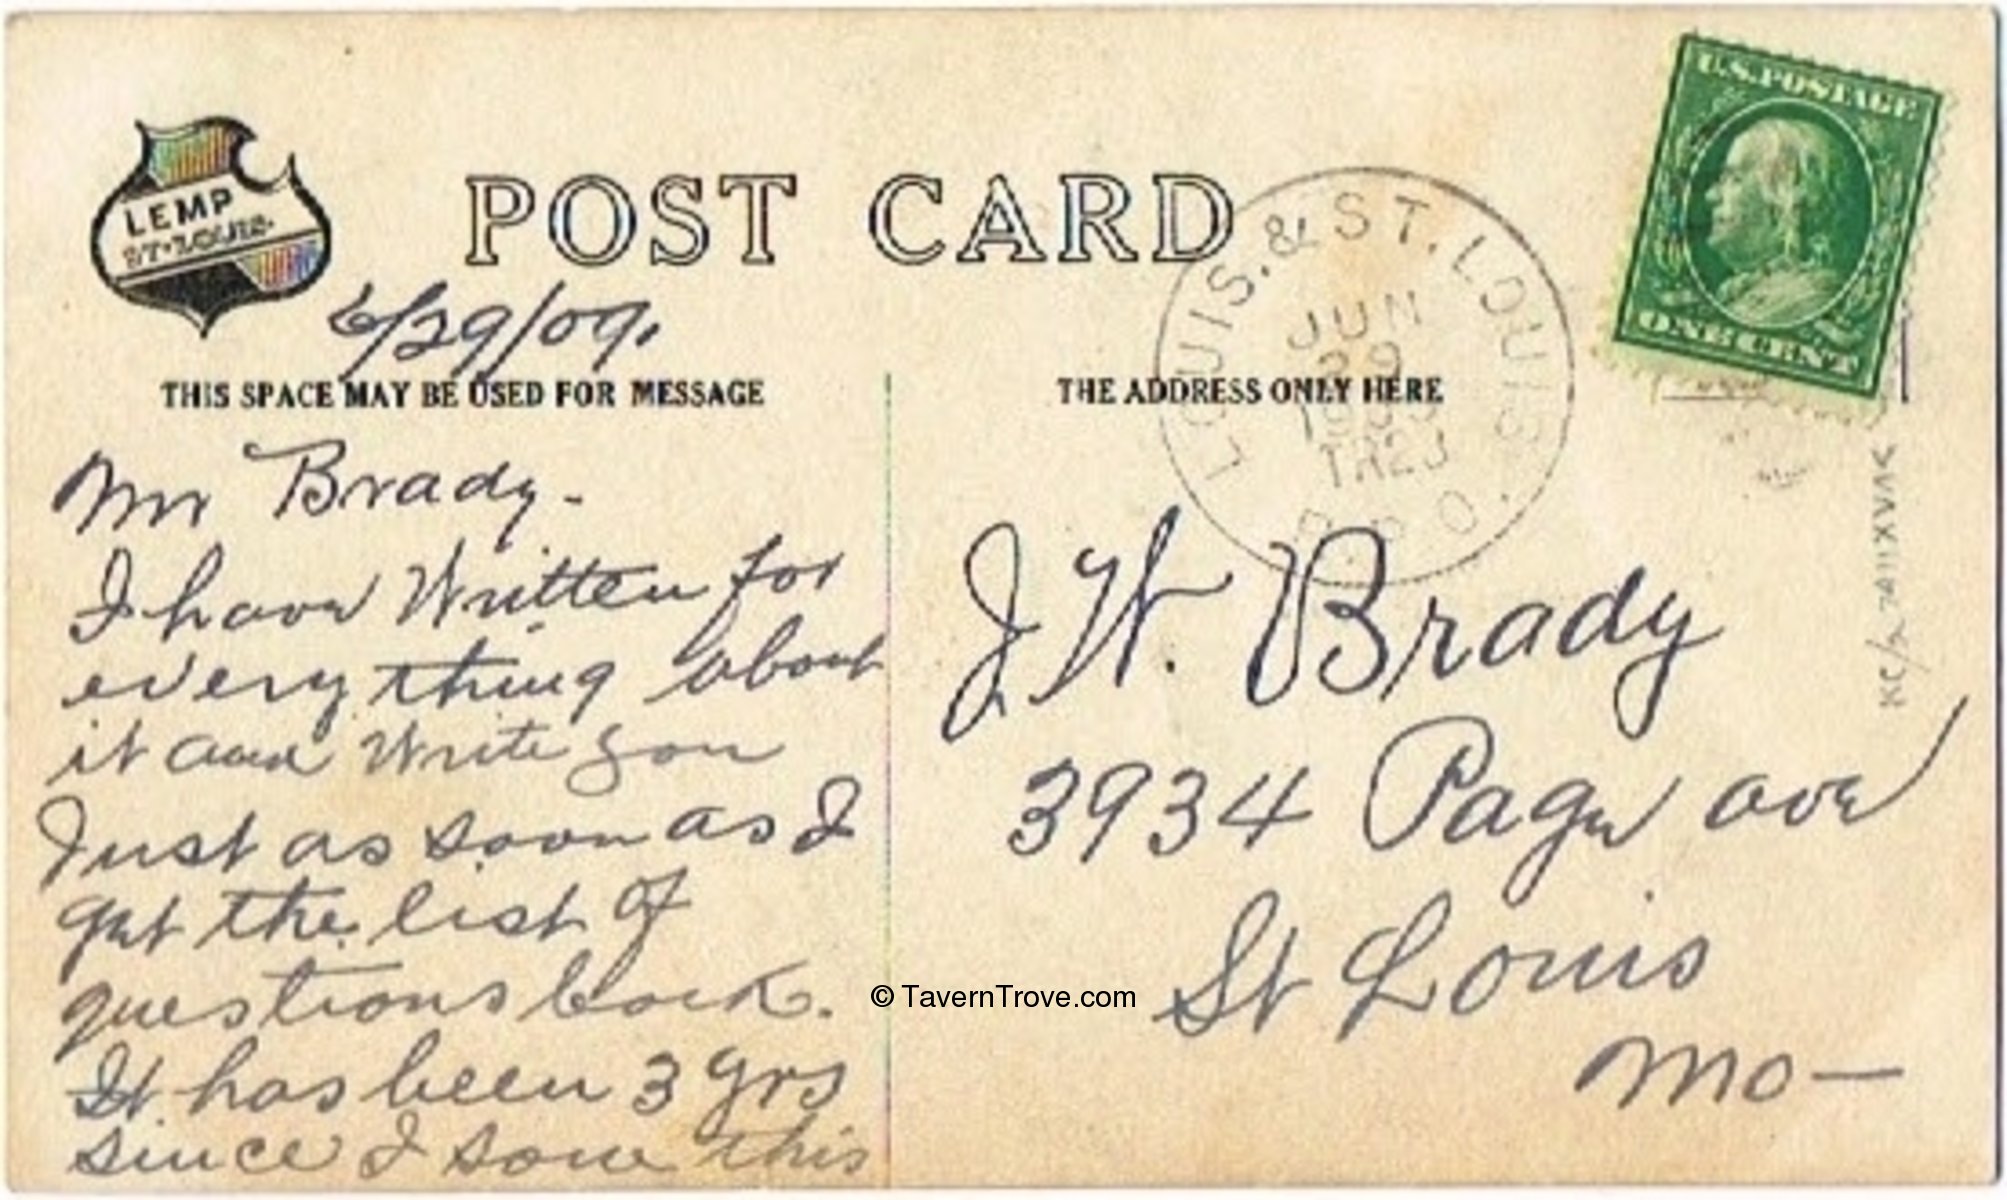 LEMP
ST. LOUIS.
POST CARD
U.S. POSTAGE
ONE CENT
LOUIS. & ST. LOUIS
JUN
29
TR2J
R.P.O.
6/29/09.
THIS SPACE MAY BE USED FOR MESSAGE
THE ADDRESS ONLY HERE
Mr Brady-
I have Written for
everything about
it and Write you
Just as soon as I
get the list of
questions back.
It has been 3 yrs
since I some this
J W. Brady
3934 Page ave
St Louis
Mo —
© TavernTrove.com